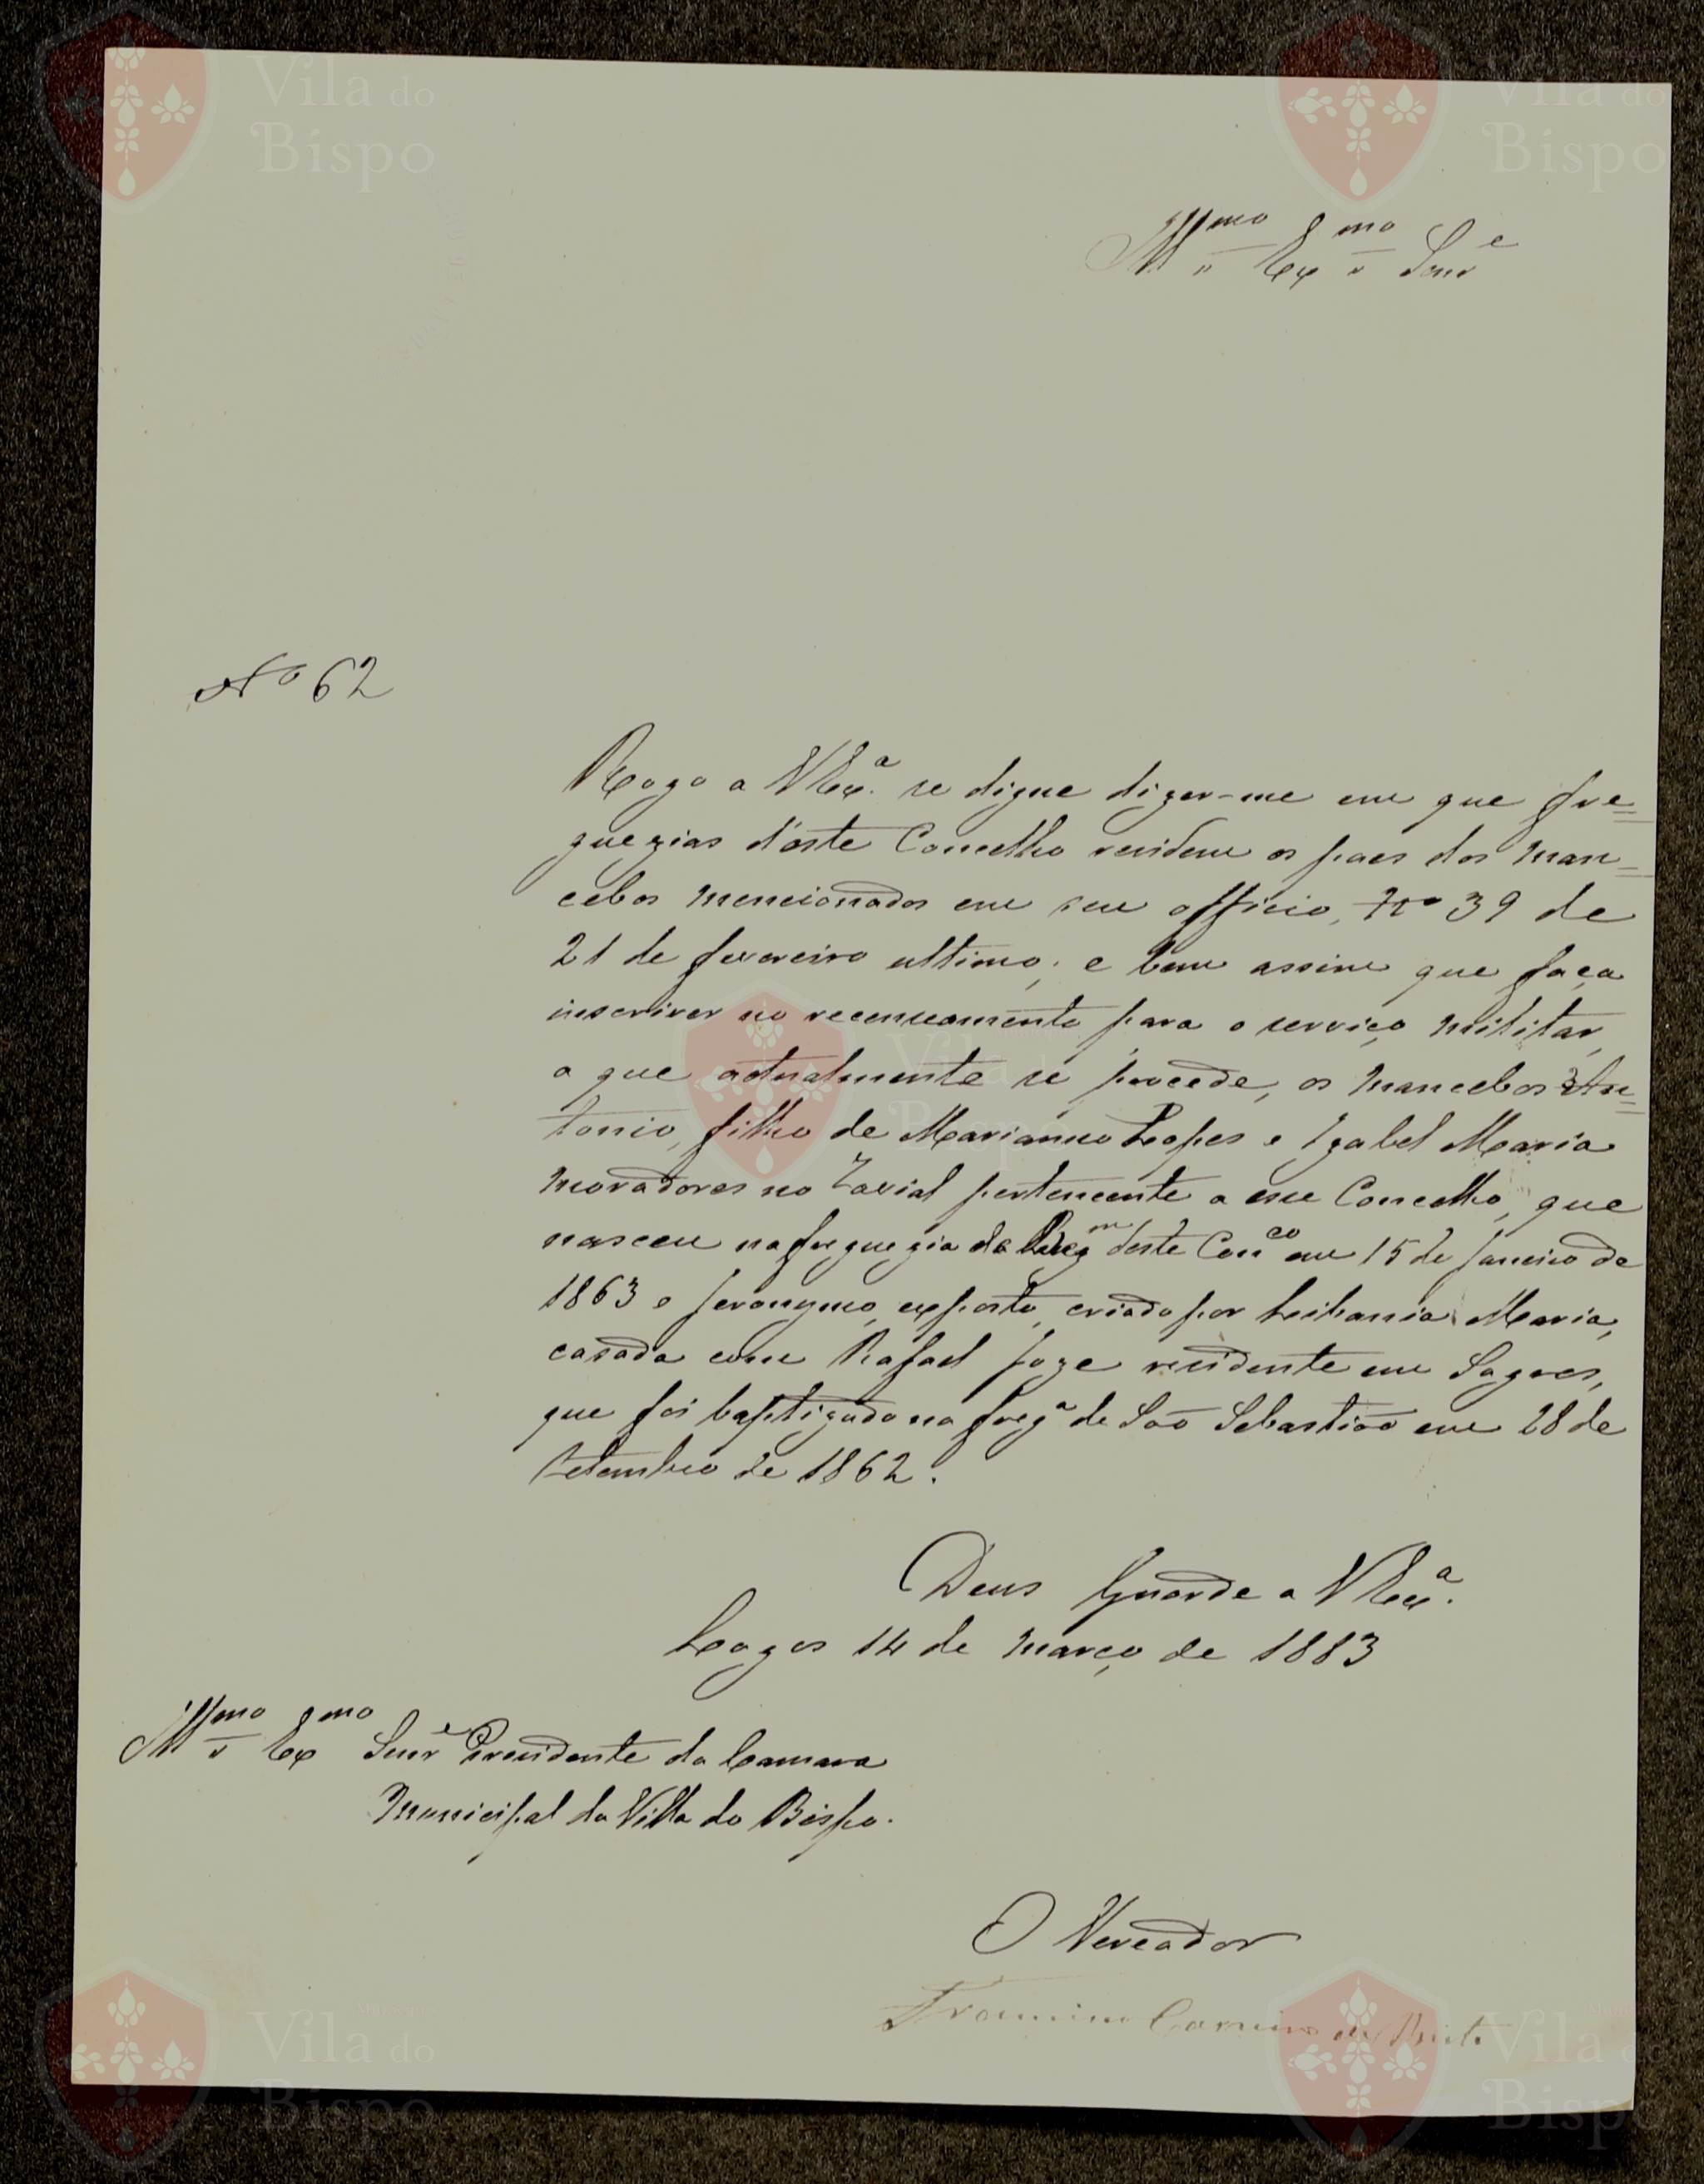 Illmo Exmo Senre
No 62
Rogo a V Exa. se digne dizer-me em que fre=
guezias d'este Concelho residem os paes dos man=
cebos mencionados em seu officio, No 39 de
21 de fevereiro ultimo, e bem assim que faça
inscriver no recenseamento para o serviço militar,
a que actualmente se procede, os mancebos An=
tonio, filho de Marianno Lopes e Izabel Maria
moradores no Zavial pertencente a esse Concelho, que
nasceu na freguezia da deste Conco em 15 de Janeiro de
1863 e Jeronymo, exposto, criado por Libania Maria,
casada com Rafael Joze residente em Sagres,
que foi baptizado na frega de São Sebastião em 28 de
Setembro de 1862.
Deus Guarde a V Exa.
Lagos 14 de março de 1883
Illmo Exmo Senre Presidente da Camara
Municipal da Villa do Bispo.
O Vereador
Vila do
Bispo